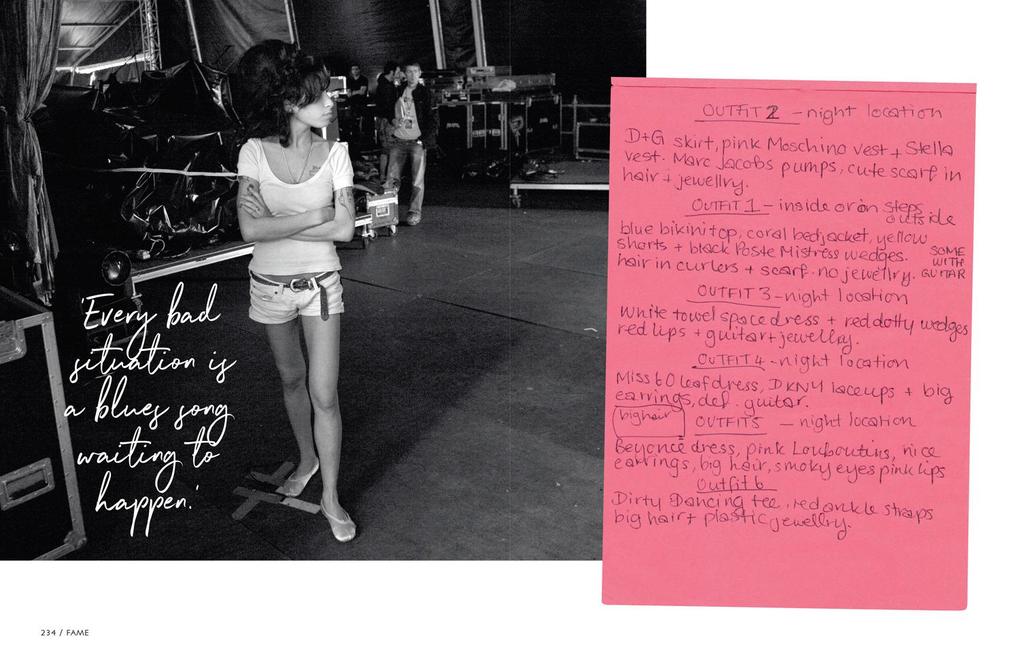 'Every bad
situation is
a blues song
waiting to
happen.'
234 / FAME
OUTFIT 2 – night location
D+G skirt, pink Moschino vest + Stella
vest. Marc Jacobs pumps, cute scarf in
hair + jewellry.
OUTFIT 1 – inside or on steps
outside
blue bikini top, coral bedjacket, yellow
shorts + black Poste Mistress wedges.
hair in curlers + scarf. no jewellry.
SOME
WITH
GUITAR
OUTFIT 3 – night location
White towel space dress + red dotty wedges
red lips + guitar + jewellry.
OUTFIT 4 – night location
Miss 60 leaf dress, DKNY laceups + big
earrings, def. guitar.
big hair
OUTFIT 5 – night location
Beyonce dress, pink Louboutins, nice
earrings, big hair, smoky eyes pink lips
Outfit 6
Dirty Dancing tee, red ankle straps
big hair + plastic jewellry.